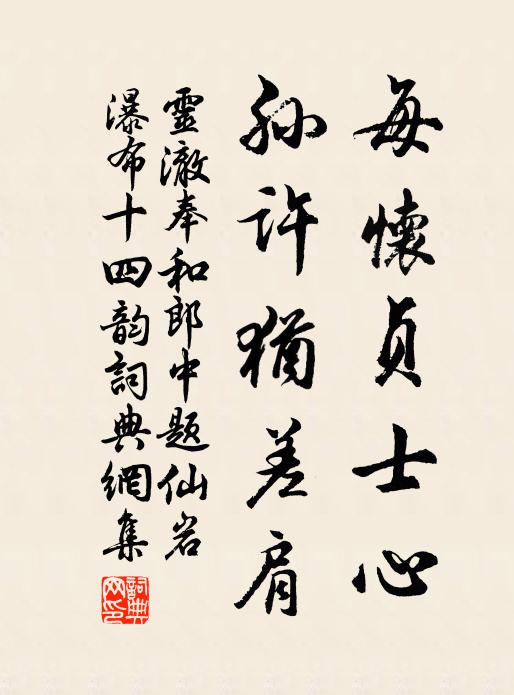 每懷貞士心
孙許猶差肩
靈澈奉和郎中题仙岩
瀑布十四韵詞典網集
詞典网印